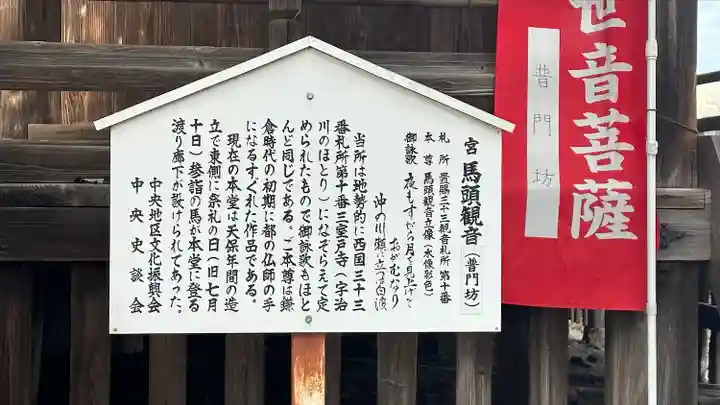 世音菩薩
普門坊
宮 馬頭観音（普門坊）
札所 置賜三十三観音札所 第十番
本尊 馬頭観音立像（木像彩色）
御詠歌 夜もすがら月を見上げて
おがむなり
沖の川瀬に立つは白波
当所は地勢的に西国三十三
番札所第十番三室戸寺（宇治
川のほとり）になぞらえて定
められたもので御詠歌もほと
んど同じである。ご本尊は鎌
倉時代の初期に都の仏師の手
になるすぐれた作品である。
現在の本堂は天保年間の造
立で東側に祭礼の日（旧七月
十日）参詣の馬が本堂に登る
渡り廊下が設けられてあった。
中央地区文化振興会
中央史談会